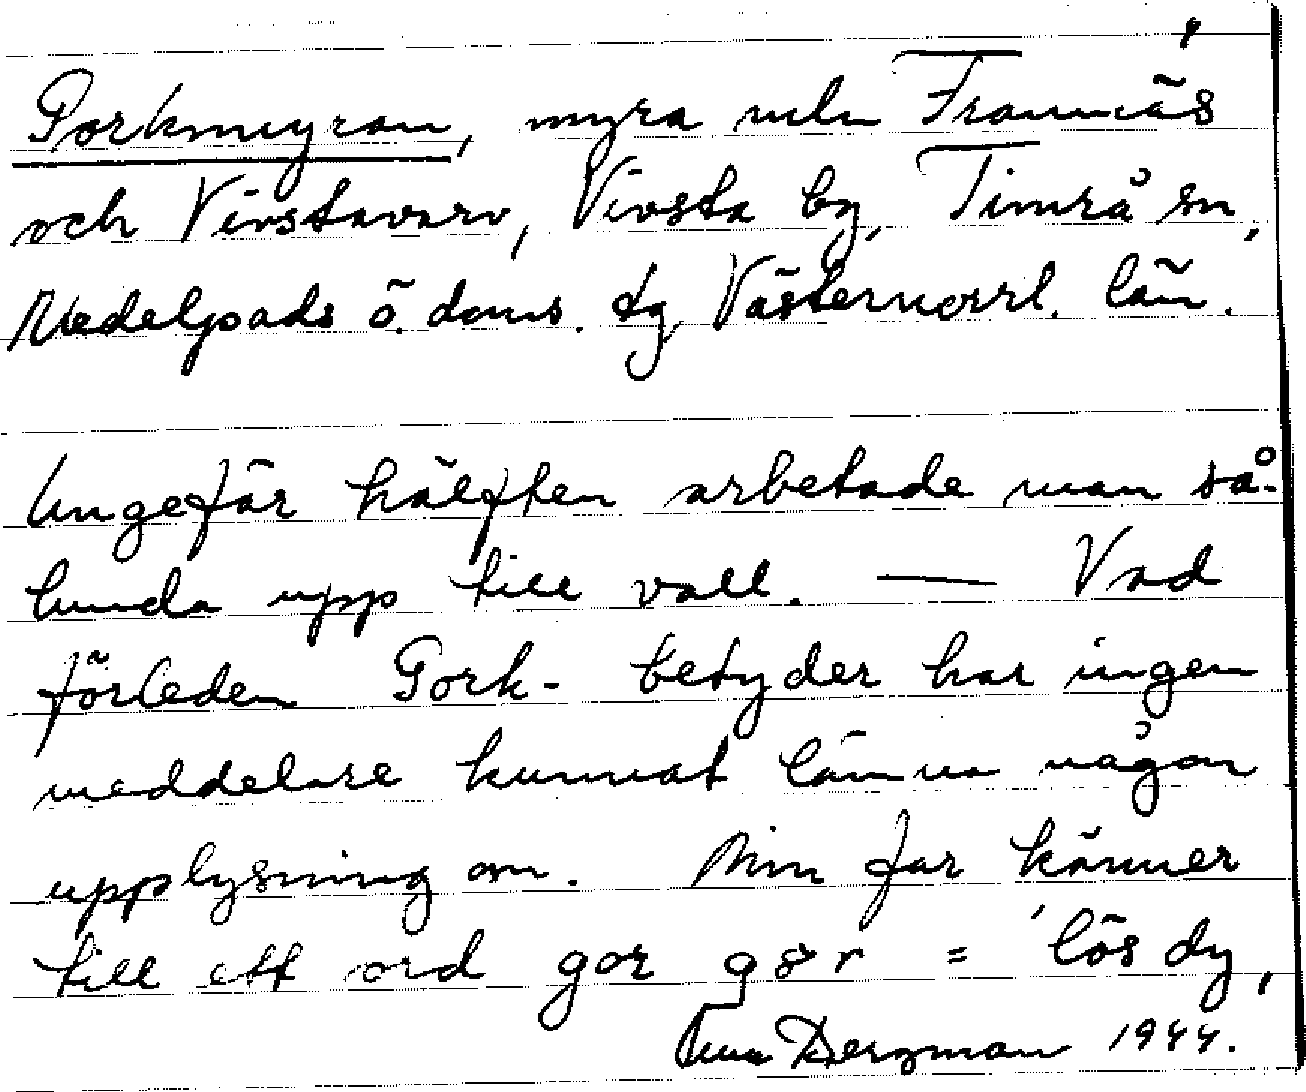 Gorkmyran, myra mln Framnäs
och Vivstavarv, Vivsta by, Timrå sn,
Medelpads ö. doms. tg, Västernorrl. län.
Ungefär hälften arbetade man så-
lunda upp till vall. — Vad
förleden Gork- betyder har ingen
meddelare kunnat lämna någon
upplysning om. Min far känner
till ett ord gor = 'lös dy,
Bergman 1944.